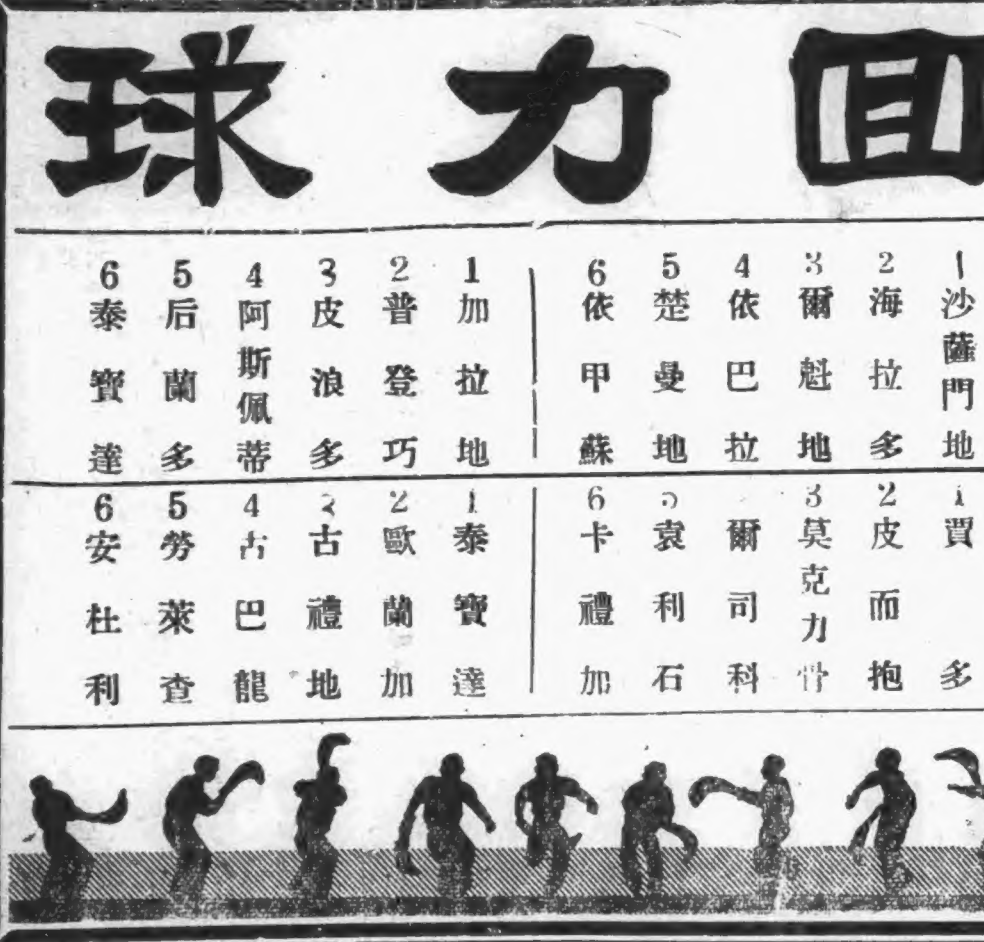 回力球
1沙薩門地
2海拉多
3爾魁地
4依巴拉
5楚曼地
6依甲蘇
1加拉地
2普登巧
3皮浪多
4阿斯佩蒂
5后蘭多
6泰寶達
1賈多
2皮而抱
3莫克力骨
爾司科
5袁利石
6卡禮加
1泰寶達
2歐蘭加
3古禮地
4古巴龍
5勞萊查
6安杜利